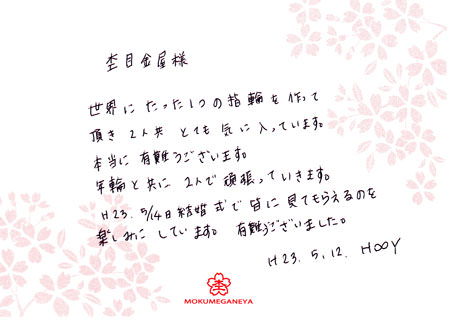 杢目金屋様
世界にたった1つの指輪を作って
頂き2人共とても気に入っています。
本当に有難うございます。
年輪と共に2人で頑張っていきます。
H23. 5/14日結婚式で皆に見てもらえるのを
楽しみにしています。有難うございました。
H23. 5. 12. HOOY
MOKUMEGANEYA